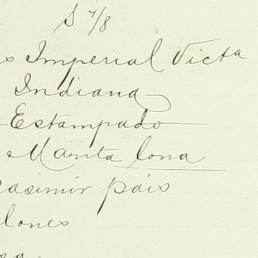 $ 7/8
s Imperial Victa
Indiana
Estampado
Manta lona
casimir pais
lones
sa